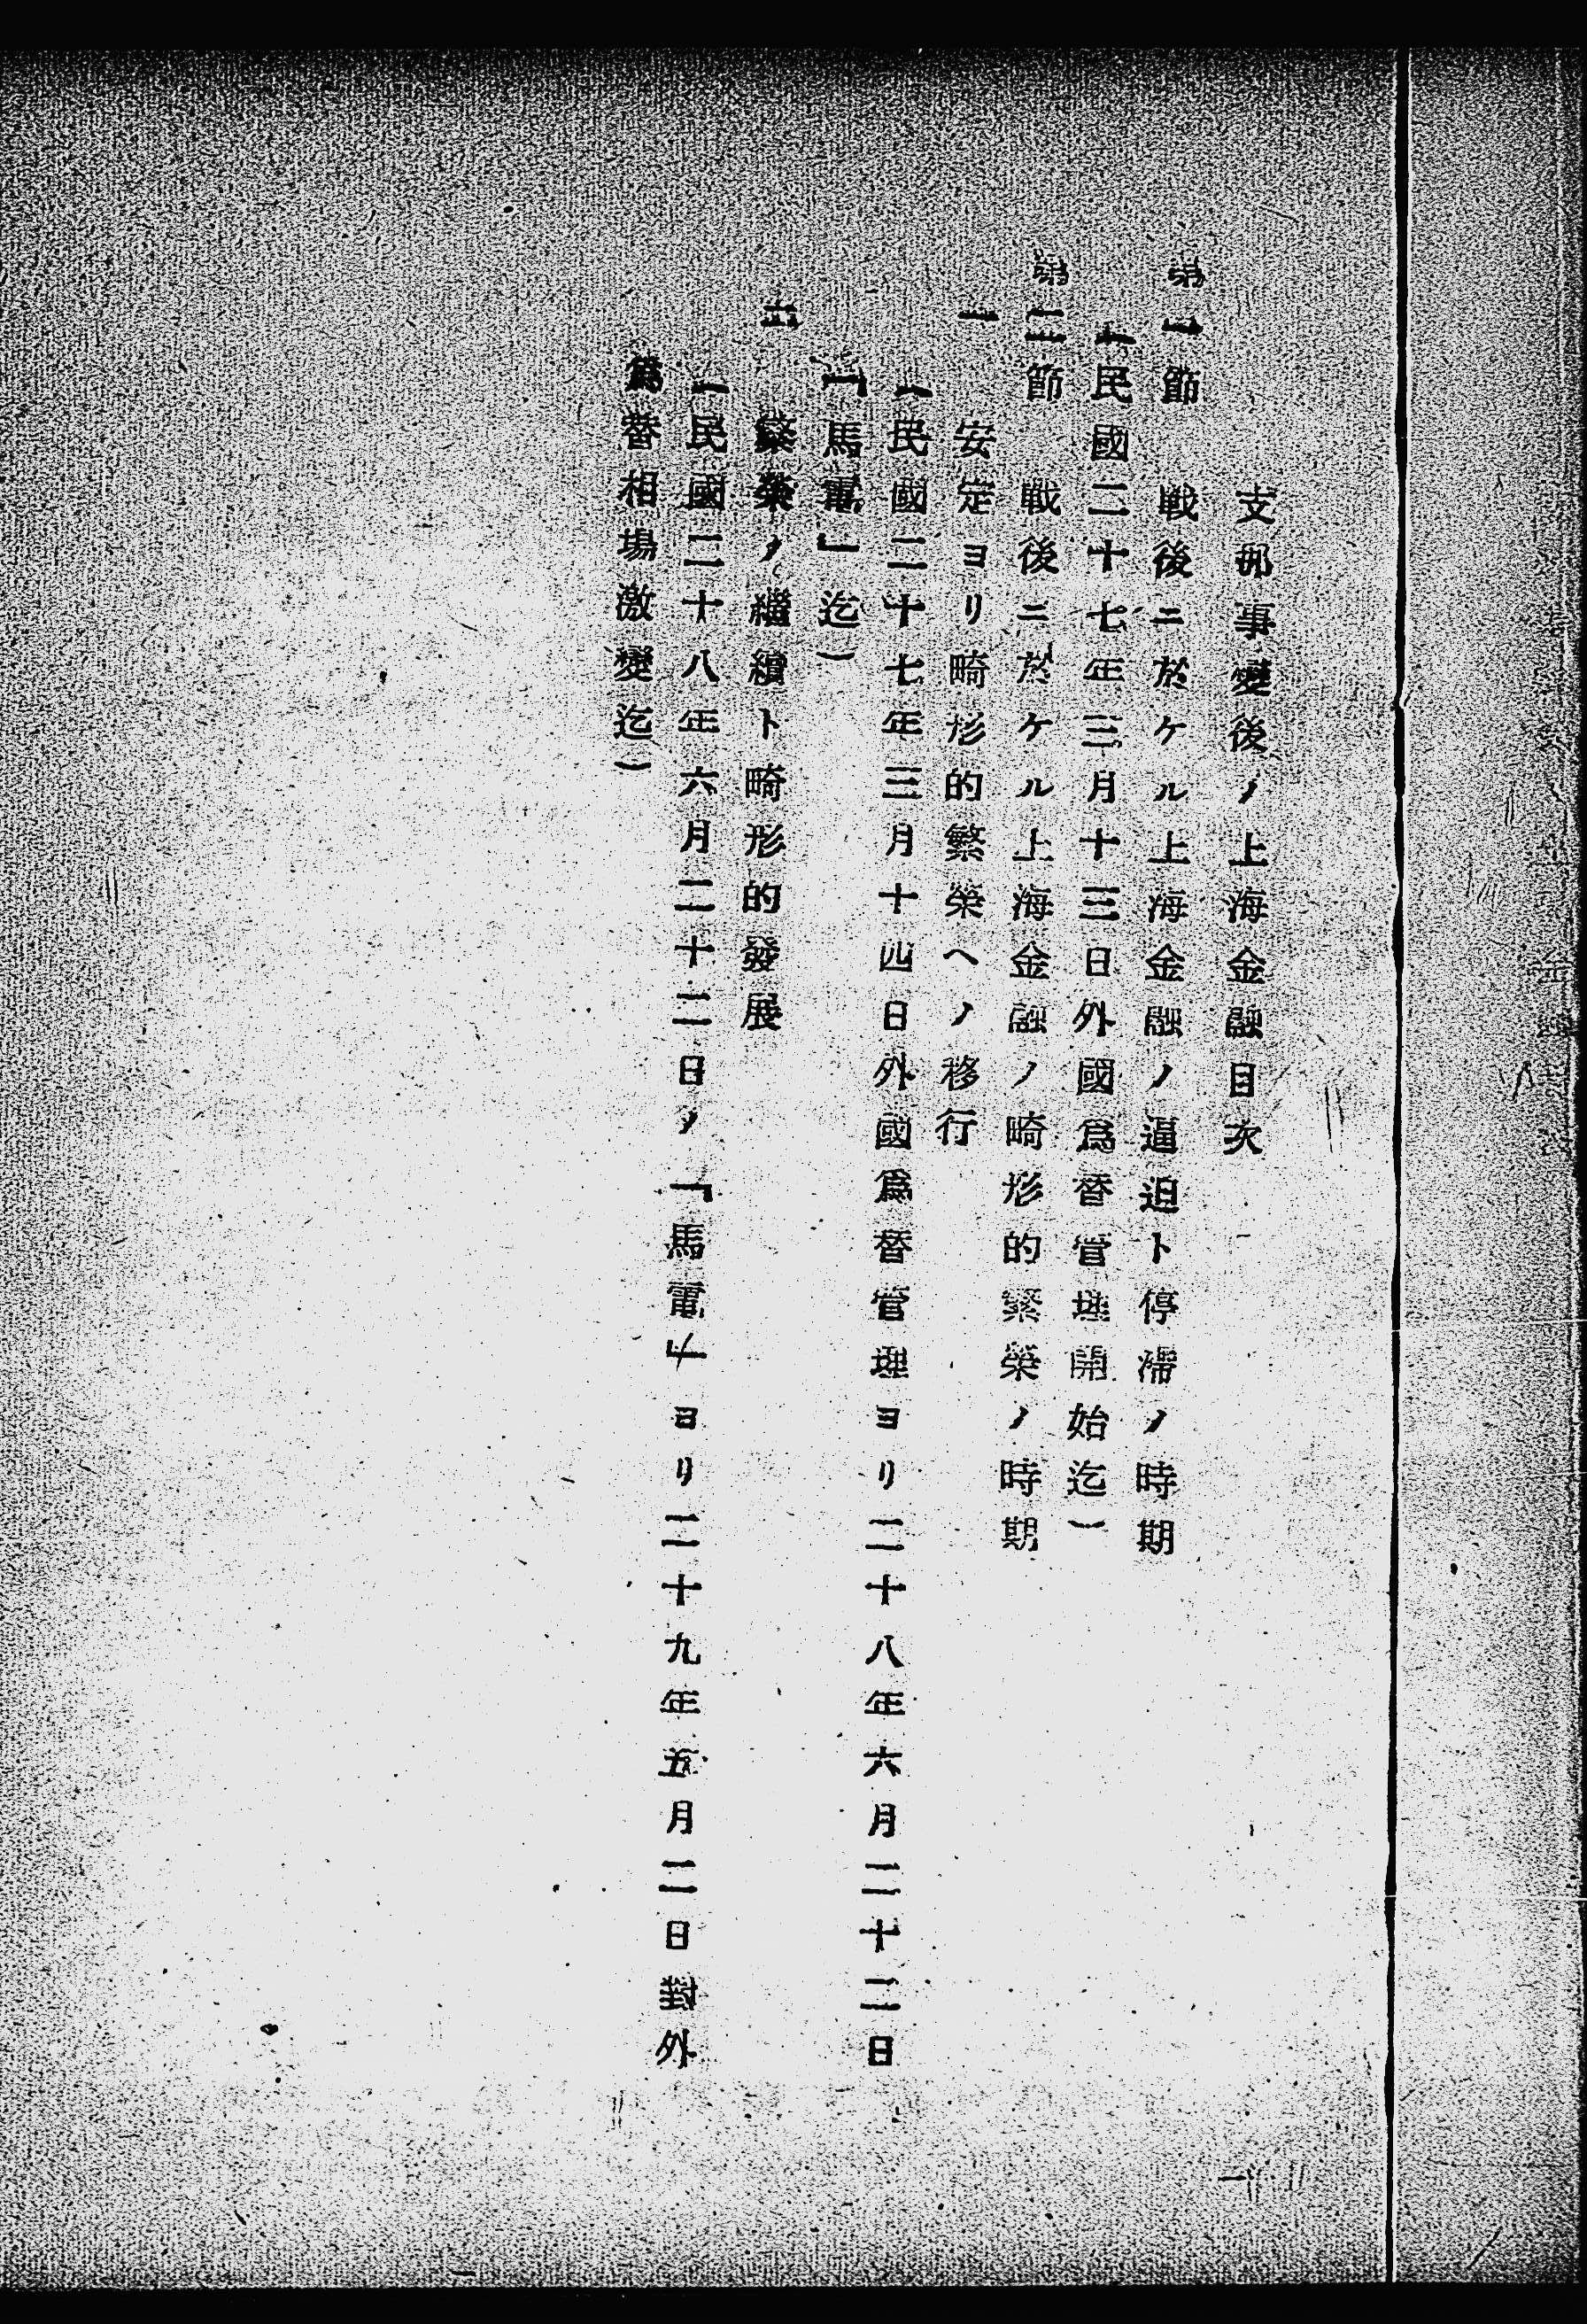 支那事變後ノ上海金融目次
第一節　戰後ニ於ケル上海金融ノ逼迫ト停滯ノ時期
（民國二十七年三月十三日外國爲替管理開始迄）
第二節　戰後ニ於ケル上海金融ノ畸形的繁榮ノ時期
一　安定ヨリ畸形的繁榮ヘノ移行
（民國二十七年三月十四日外國爲替管理ヨリ二十八年六月二十二日
「馬電」迄）
二　繁榮ノ繼續ト畸形的發展
（民國二十八年六月二十二日ノ「馬電」ヨリ二十九年五月二日對外
爲替相場激變迄）
一